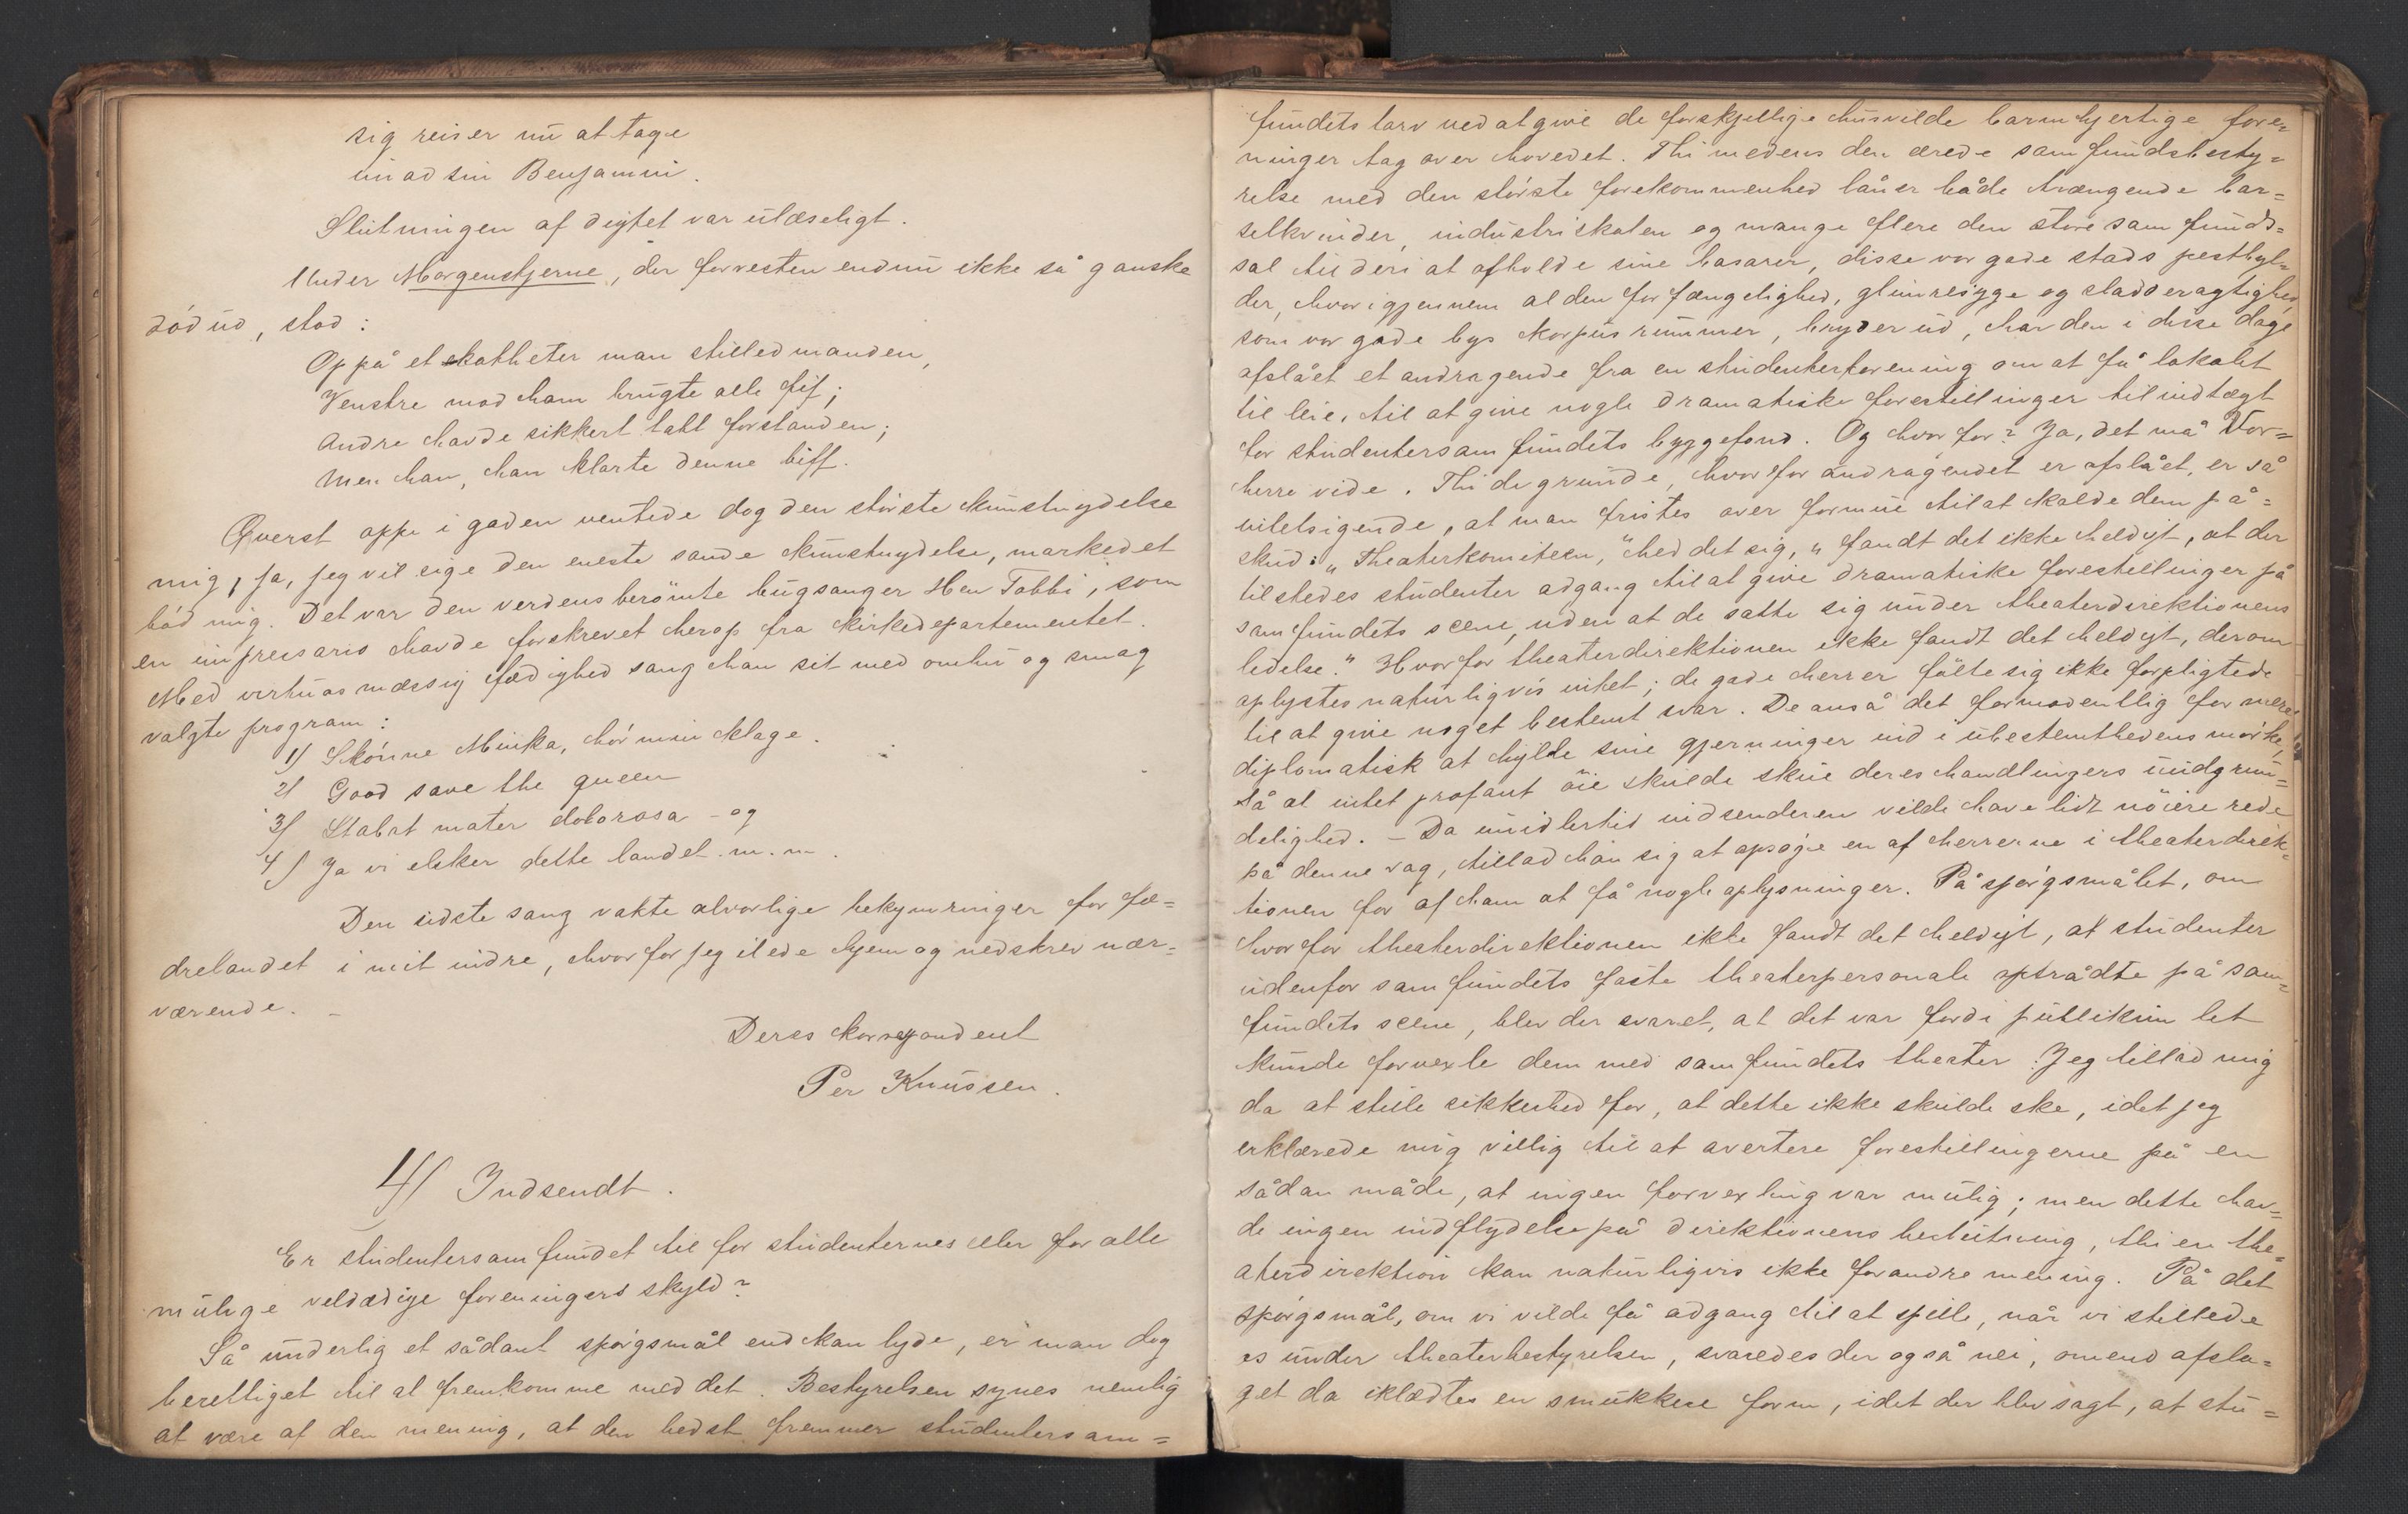 sig reiser nu at tage
imod sin Benjamin.
Slutningen af digtet var ulæseligt.
Under Morgenstjerne, der forresten endnu ikke så ganske
død ud, stod:
Op på et katheter man stilled manden,
Venstre mod ham brugte alle fif;
Andre havde sikkert tabt forstanden;
Men han, han klarte denne biff.
Øverst oppe i gaden ventede dog den største kunstnydelse
mig, ja, jeg vil sige den eneste sande kunstnydelse, markedet
bød mig. Det var den verdensberömte bugsanger Herr Tobbi, som
en impressario havde forskrevet herop fra kirkedepartementet.
Med virtuosmæssig færdighed sang han sit med omhu og smag
valgte program:
1) Skönne Minka, hör min klage.
2) Good save the queen
3) Stabat mater dolorosa – og
4) Ja vi elsker dette landet. m. m.
Den sidste sang vakte alvorlige bekymringer for fæ=
drelandet i mit indre, hvorfor jeg ilede hjem og nedskrev nær=
værende. –
Deres korrespondent
Per Knussen.
4) Indsendt.
Er studentersamfundet til for studenternes eller for alle
mulige veldædige foreningers skyld?
Så underlig et sådant spörgsmål end kan lyde, er man dog
berettiget til at fremkomme med det. Bestyrelsen synes nemlig
at være af den mening, at den bedst fremmer studentersam=
fundets tarv ved at give de forskjellige husvilde barmhjertige fore=
ninger tag over hovedet. Thi medens den ærede samfundsbesty=
relse med den störste forekommenhed låner både trængende bar=
selkvinder, industriskolen og mange flere den store samfunds=
sal til deri at afholde sine basarer, disse vor gode stads pestbyl=
der, hvorigjennem al den forfængelighed, glimresyge og sladderagtighed
som vor gode bys korpus rummer, bryder ud, har den i disse dage
afslået et andragende fra en studenterforening om at få lokalet
til leie, til at give nogle dramatiske forestillinger til indtægt
for studentersamfundets byggefond. Og hvorfor? Ja, det må Vor=
herre vide. Thi de grunde, hvorfor andragendet er afslået, er så
intetsigende, at man fristes over formue til at kalde dem på=
skud: „Theaterkomiteen," hed det sig, „fandt det ikke heldigt, at der
tilstedes studenter adgang til at give dramatiske forestillinger på
samfundets scene, uden at de satte sig under theaterdirektionens
ledelse." Hvorfor theaterdirektionen ikke fandt det heldigt, derom
oplystes naturligvis intet; de gode herrer fölte sig ikke forpligtede
til at give noget bestemt svar. De anså det formodentlig for mere
diplomatisk at hylle sine gjerninger ind i ubestemthedens mörke,
så at intet profant öie skulde skue deres handlingers uudgrun=
delighed. – Da imidlertid indsenderen vilde have lidt nöiere rede
på denne sag, tillod han sig at opsöge en af herrerne i theaterdirek=
tionen for af ham at få nogle oplysninger. På spörgsmålet, om
hvorfor theaterdirektionen ikke fandt det heldigt, at studenter
udenfor samfundets faste theaterpersonale optrådte på sam=
fundets scene, blev der svaret, at det var fordi publikum let
kunde forvexle dem med samfundets theater. Jeg tillod mig
da at stille sikkerhed for, at dette ikke skulde ske, idet jeg
erklærede mig villig til at avertere forestillingerne på en
sådan måde, at ingen forvexling var mulig; men dette hav=
de ingen indflydelse på direktionens beslutning, thi en the=
aterdirektion kan naturligvis ikke forandre mening. På det
spörgsmål, om vi vilde få adgang til at spille, når vi stillede
os under theaterbestyrelsen, svaredes der også nei, omend afsla=
get da iklædtes en smukkere form, idet der blev sagt, at stu=